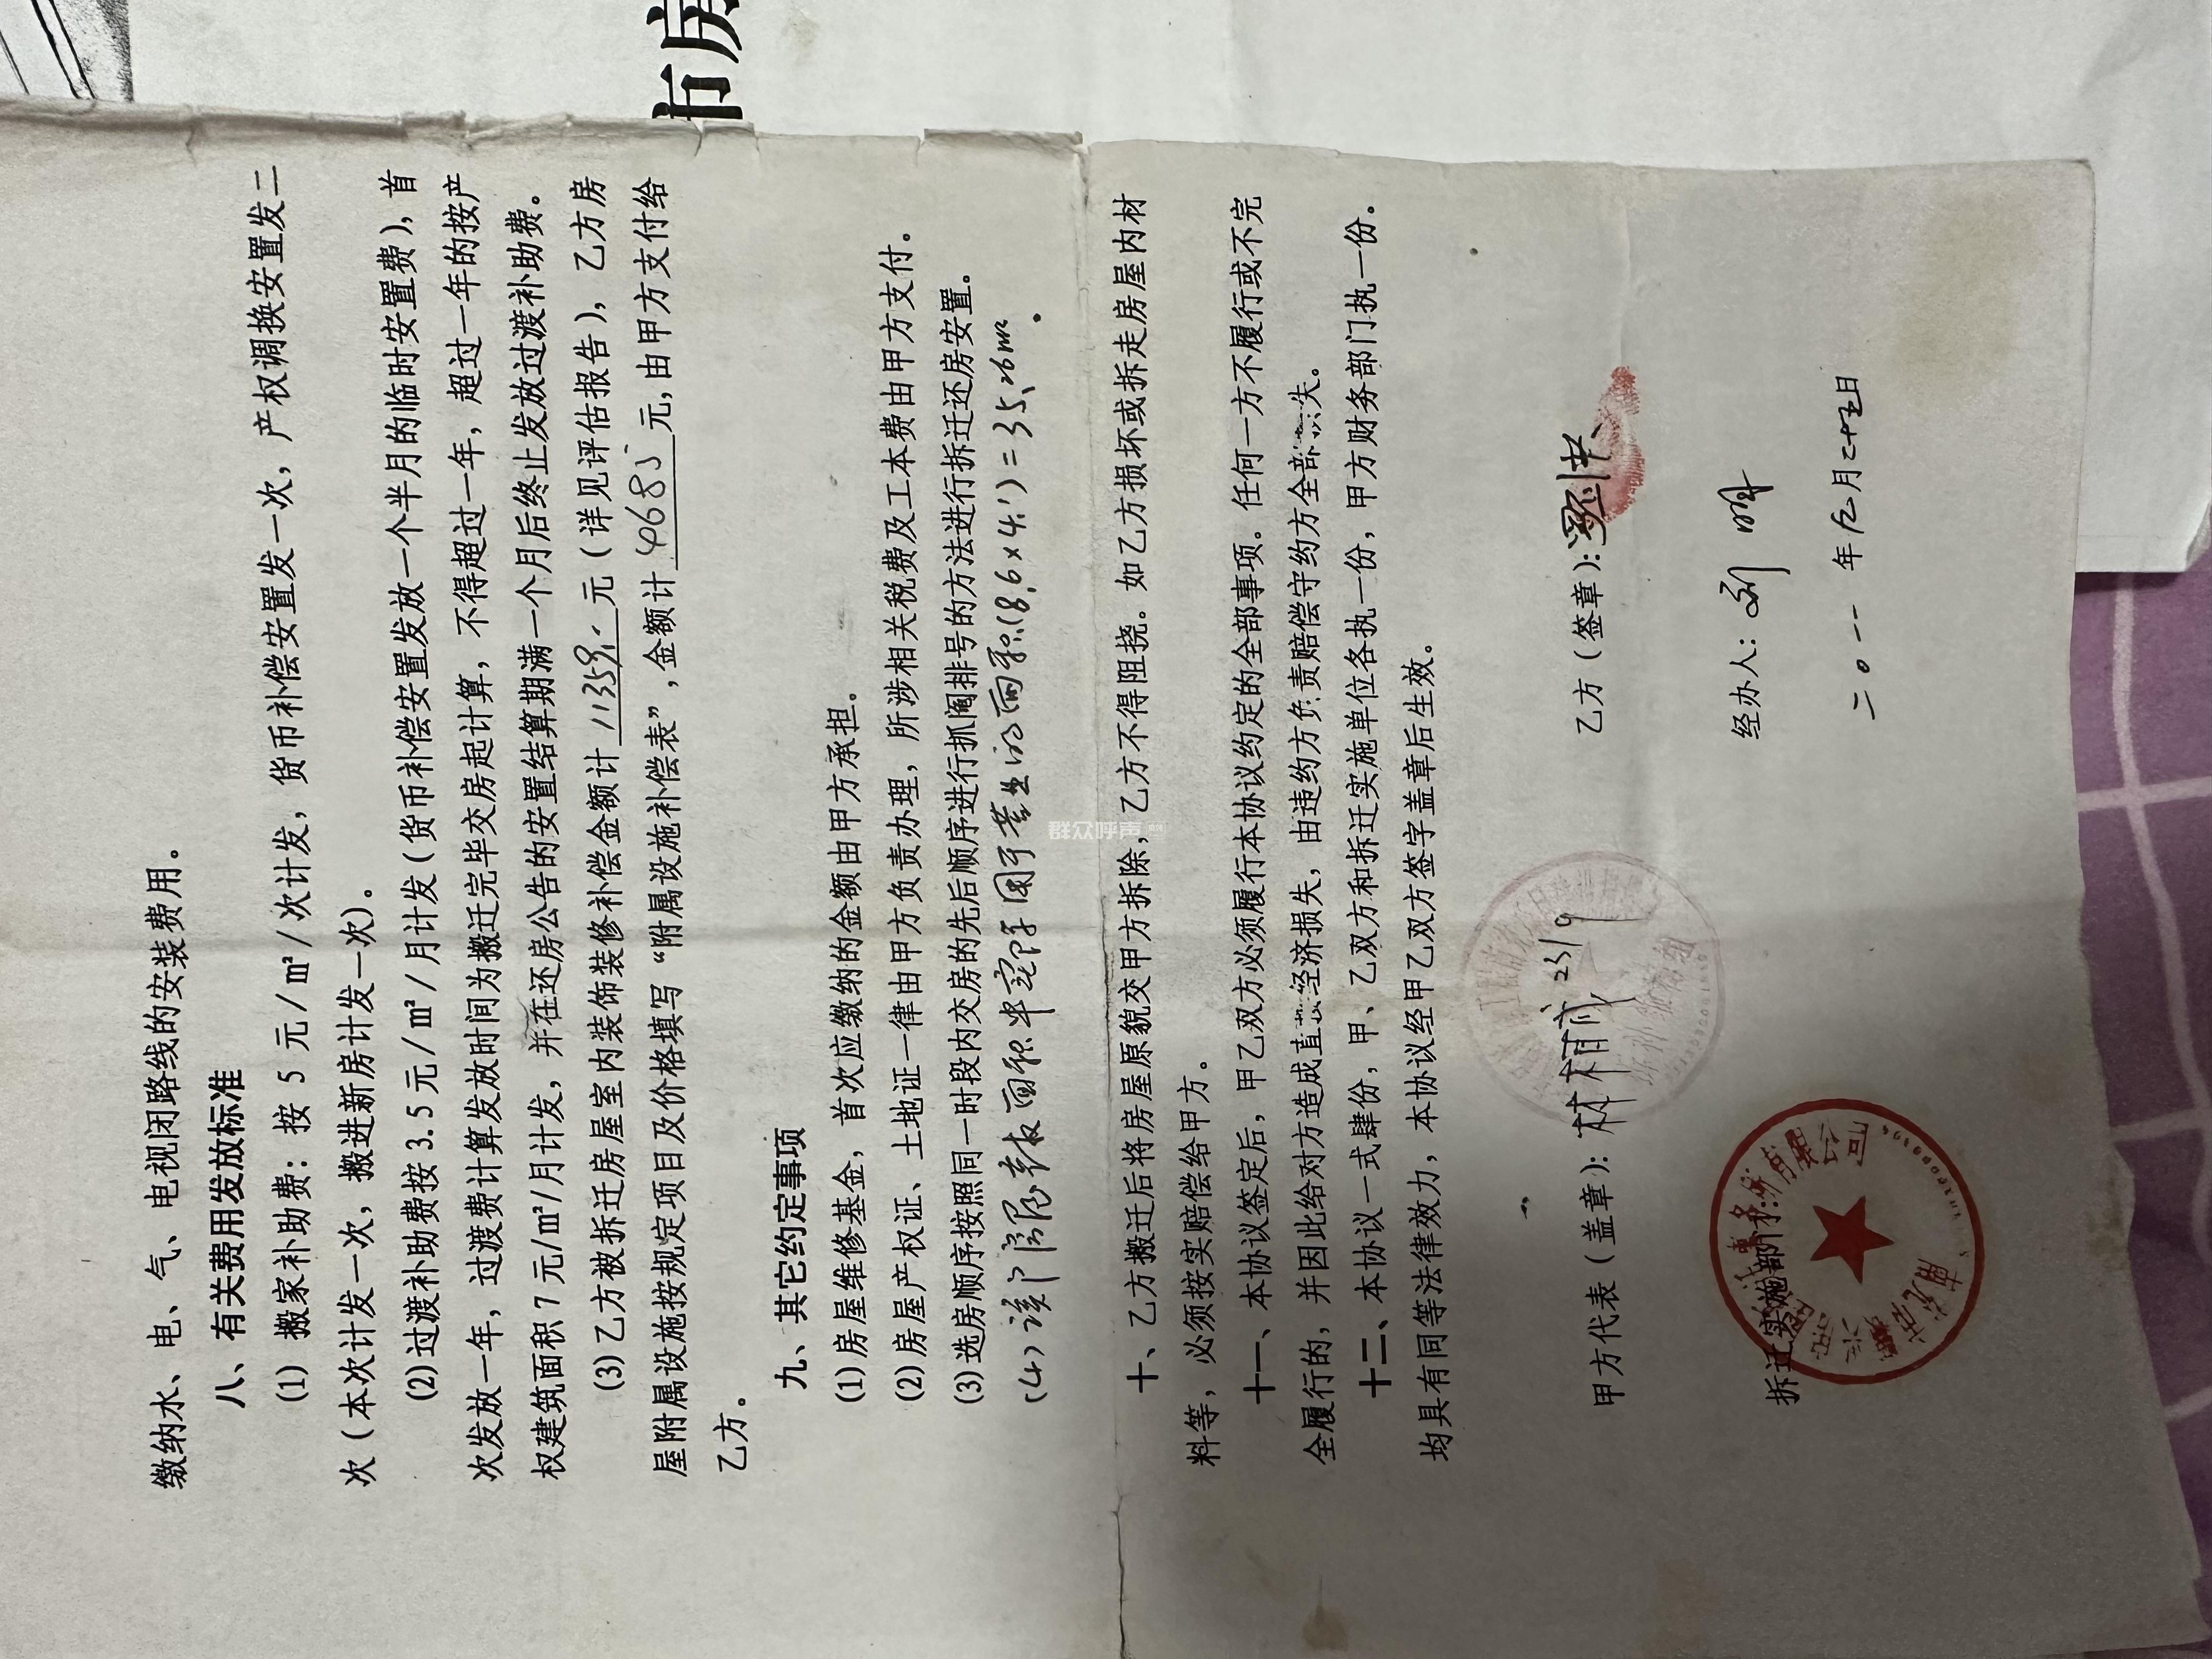 市房
缴纳水、电、气、电视闭路线的安装费用。
八、有关费用发放标准
(1) 搬家补助费：按 5 元/㎡/次计发，货币补偿安置发一次，产权调换安置发二
次（本次计发一次，搬进新房计发一次）。
(2)过渡补助费按 3.5 元/㎡/月计发（货币补偿安置发放一个半月的临时安置费），首
次发放一年，过渡费计算发放时间为搬迁完毕交房起计算，不得超过一年，超过一年的按产
权建筑面积 7 元/㎡/月计发，并在还房公告的安置结算期满一个月后终止发放过渡补助费。
(3)乙方被拆迁房屋室内装饰装修补偿金额计 11359. 元（详见评估报告），乙方房
屋附属设施按规定项目及价格填写“附属设施补偿表”，金额计 4685 元，由甲方支付给
乙方。
九、其它约定事项
(1)房屋维修基金，首次应缴纳的金额由甲方承担.
(2)房屋产权证、土地证一律由甲方负责办理，所涉相关税费及工本费由甲方支付。
(3)选房顺序按照同一时段内交房的先后顺序进行抓阄排号的方法进行拆迁还房安置。
(4)该户 面积 面积(8.6×4.1)=35.26m²。
群众呼声
十、乙方搬迁后将房屋原貌交甲方拆除，乙方不得阻挠。如乙方损坏或拆走房屋内材
料等，必须按实赔偿给甲方。
十一、本协议签定后，甲乙双方必须履行本协议约定的全部事项。任何一方不履行或不完
全履行的，并因此给对方造成直接经济损失，由违约方负责赔偿守约方全部损失。
十二、本协议一式肆份，甲、乙双方和拆迁实施单位各执一份，甲方财务部门执一份。
均具有同等法律效力，本协议经甲乙双方签字盖章后生效。
甲方代表（盖章）：林 23/9
乙方（签章）：
拆迁实施部门：
经办人：刘
二〇一一年 九月二十五日